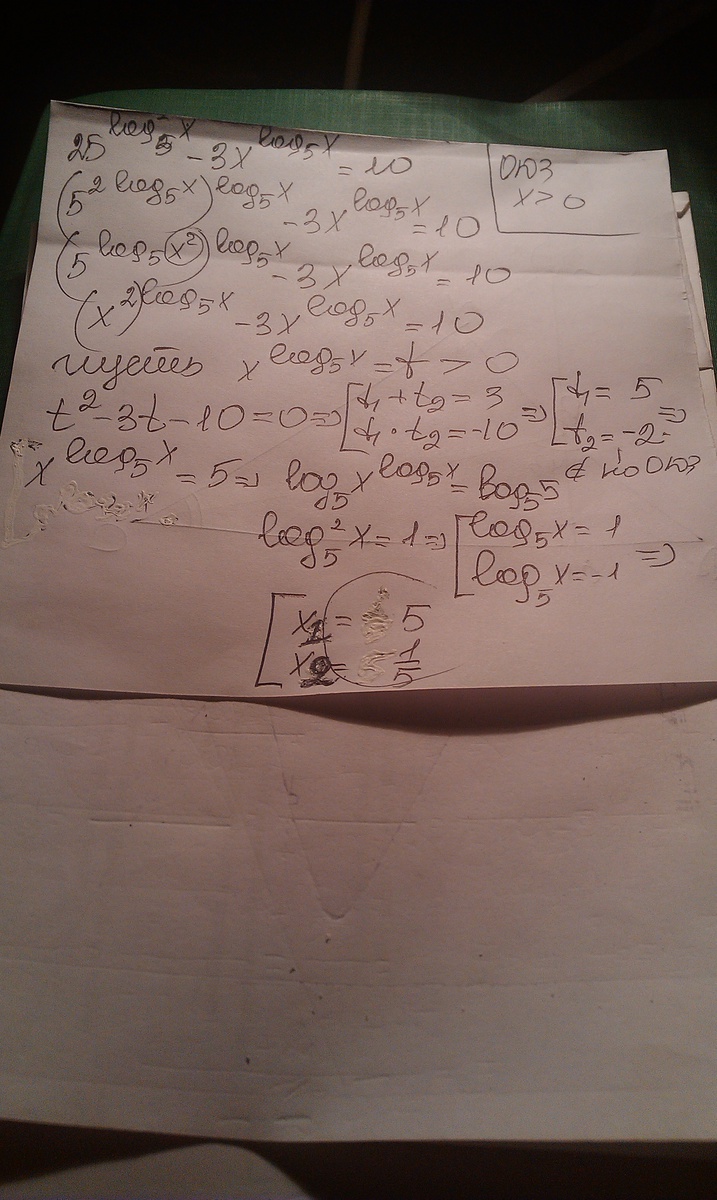 25^{log_5^2 x} - 3x^{log_5 x} = 10
ОЮЗ
x > 0
(5^{2 log_5 x})^{log_5 x} - 3x^{log_5 x} = 10
(5^{log_5 (x^2)})^{log_5 x} - 3x^{log_5 x} = 10
(x^2)^{log_5 x} - 3x^{log_5 x} = 10
пусть x^{log_5 x} = t > 0
t^2 - 3t - 10 = 0 => [ t_1 + t_2 = 3 => [ t_1 = 5 =>
t_1 · t_2 = -10 t_2 = -2 -
∉ по ОЮЗ
x^{log_5 x} = 5 => log_5 x^{log_5 x} = log_5 5
log_5^2 x = 1 => [ log_5 x = 1
log_5 x = -1 =>
[ x_1 = 5
x_2 = 1/5